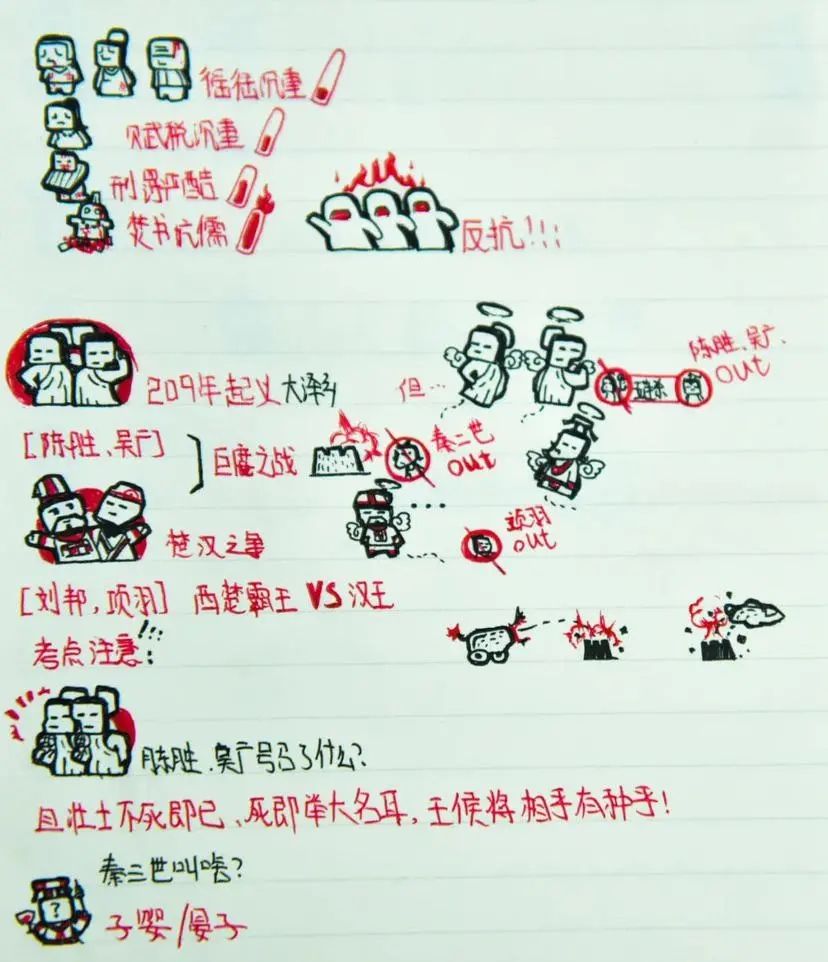 徭役沉重
赋税沉重
刑罚严酷
焚书坑儒
反抗!!!
209年起义大泽乡
但…
陈胜、吴广、
out
[陈胜、吴广]
巨鹿之战
秦二世
out
楚汉之争
项羽
out
[刘邦,项羽] 西楚霸王 VS 汉王
考点注意!!!
陈胜、吴广号召了什么?
且壮士不死即已、死即举大名耳,王侯将相乎有种乎!
秦三世叫啥?
?
子婴/晏子